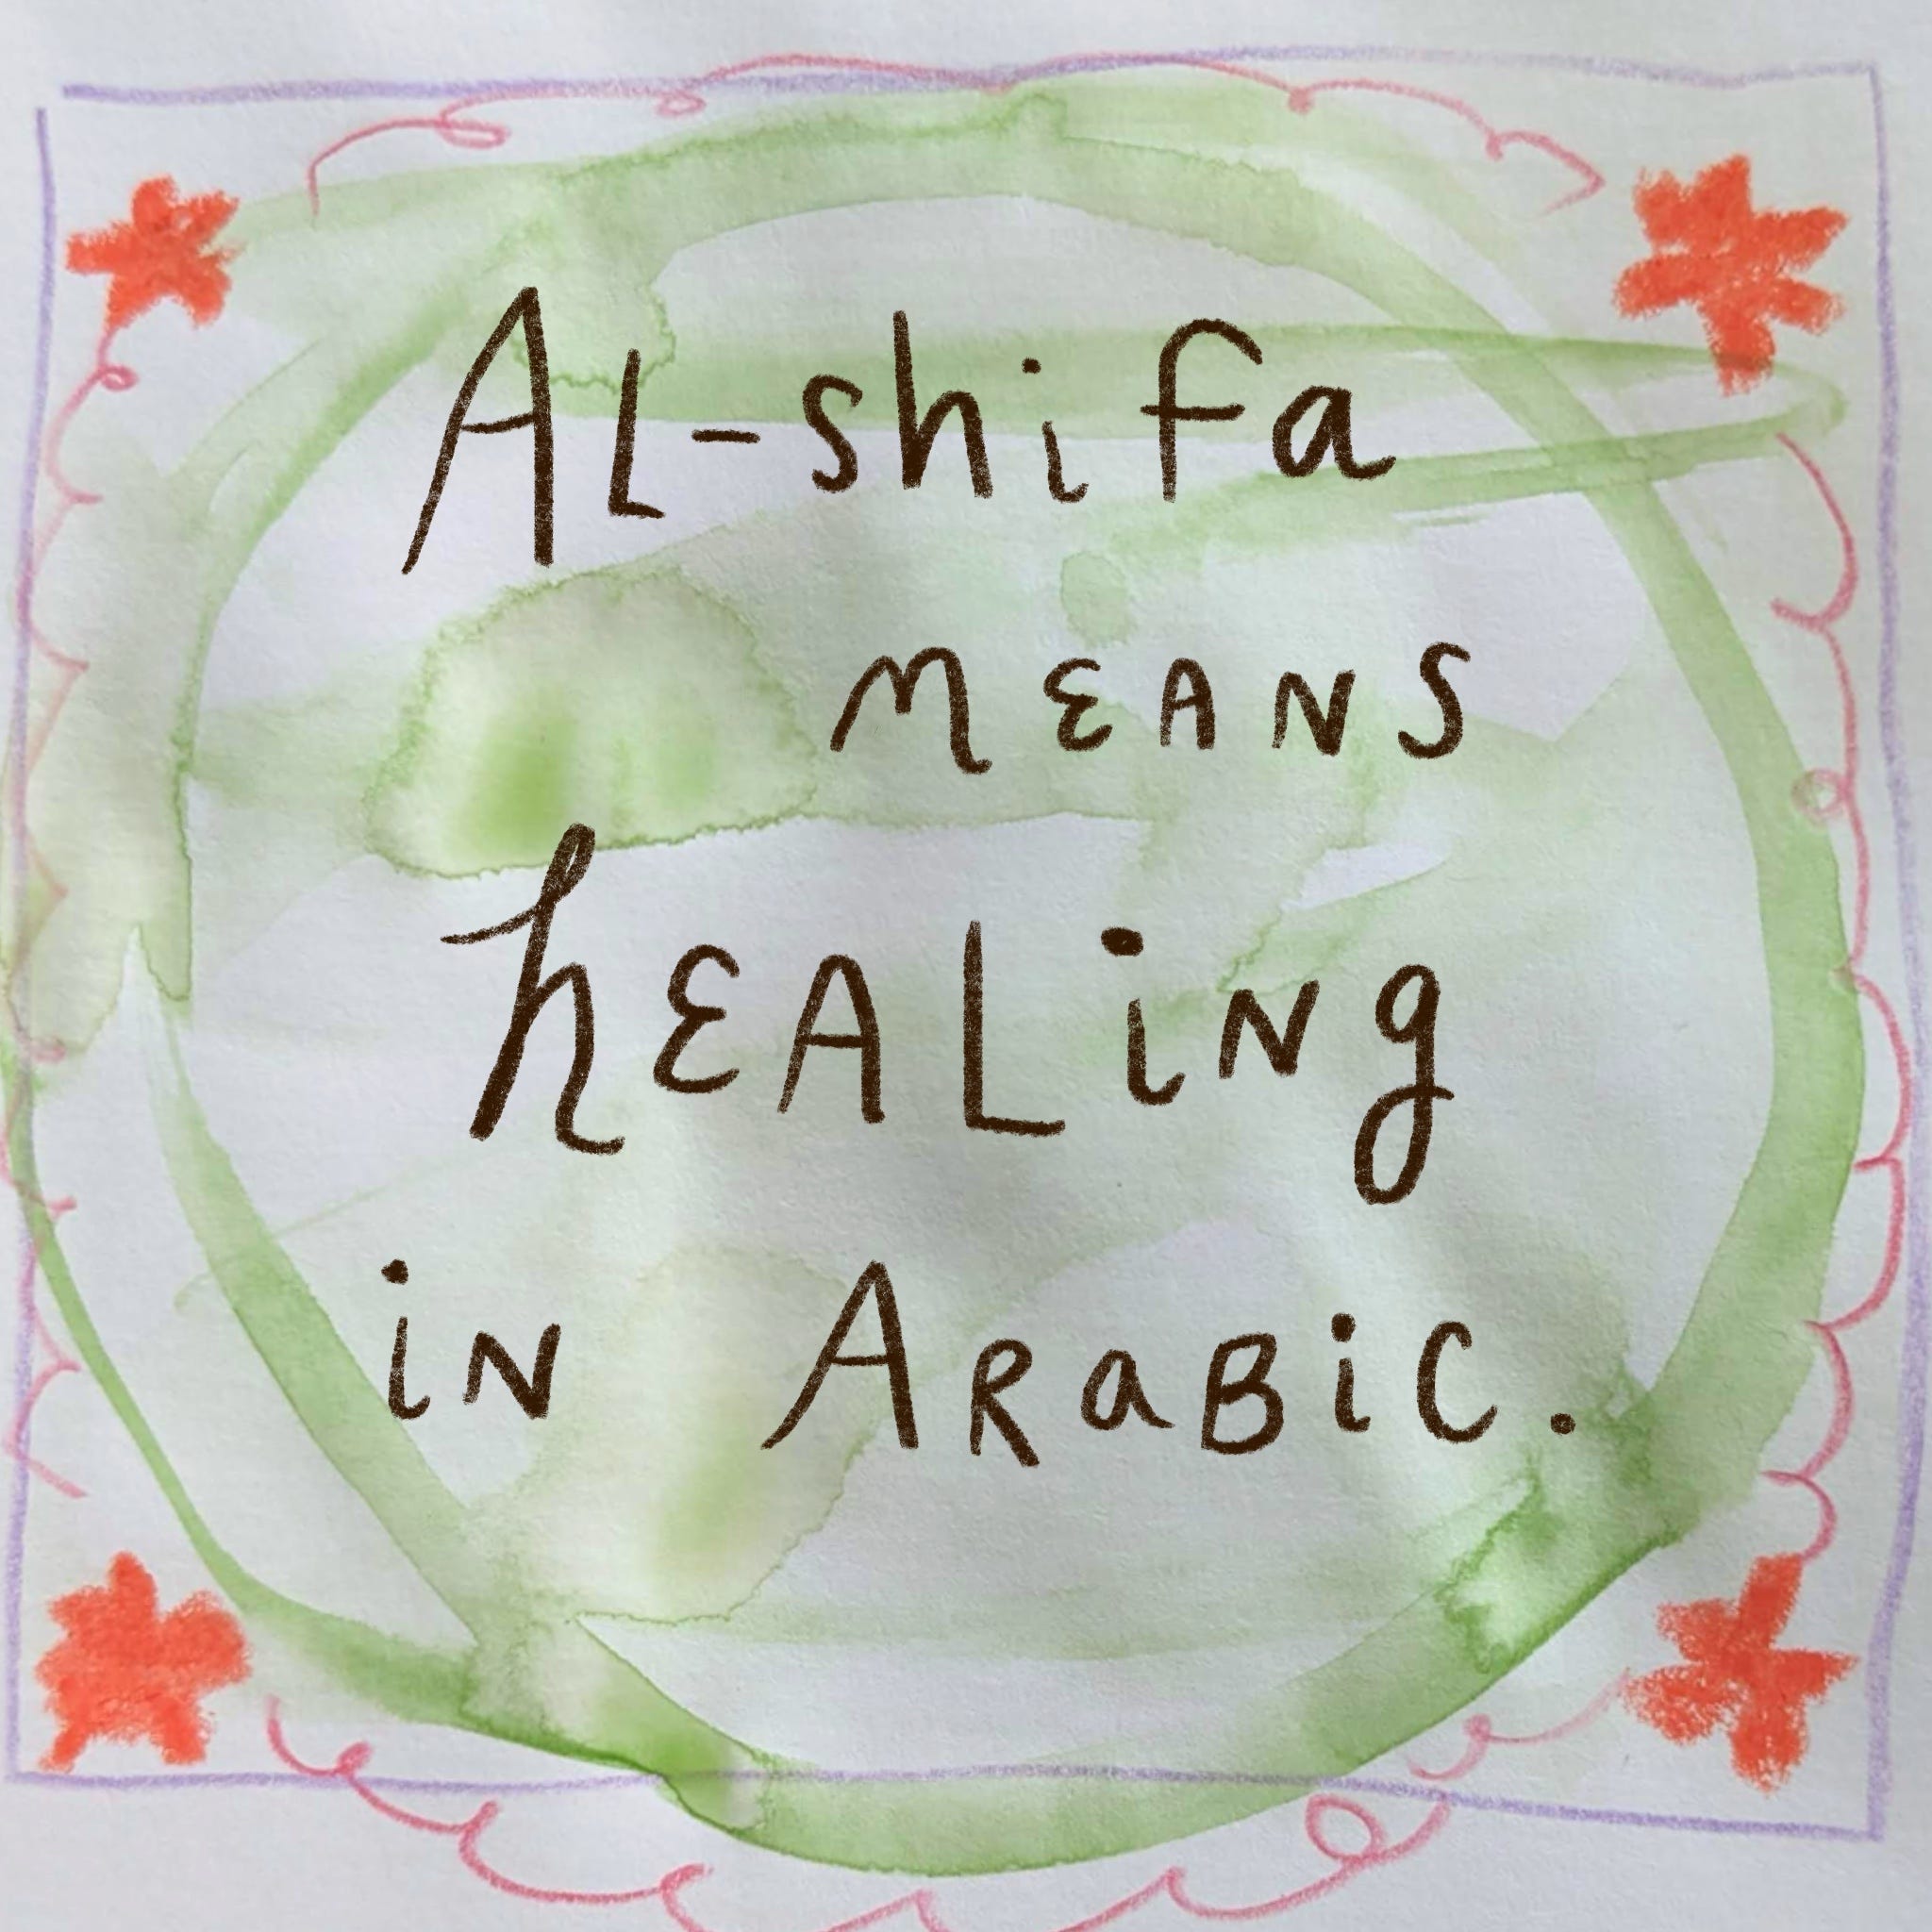 Al-shifa
means
healing
in Arabic.